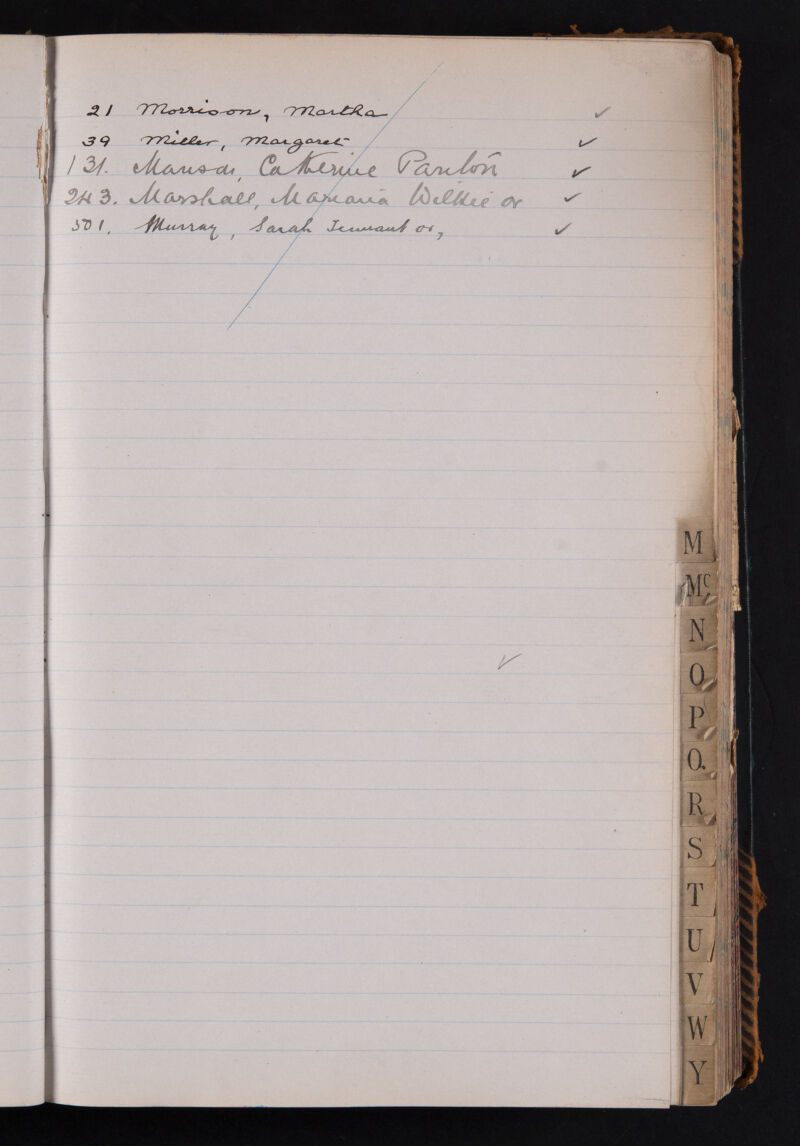 21 Morrison, Martha
39 Miller, Margaret
131. Manson, Catherine Panton
243. Marshall, Wilkie or
501. Murray, Sarah Tennant or,
M
Mc
N
O
P
Q
R
S
T
U
V
W
Y